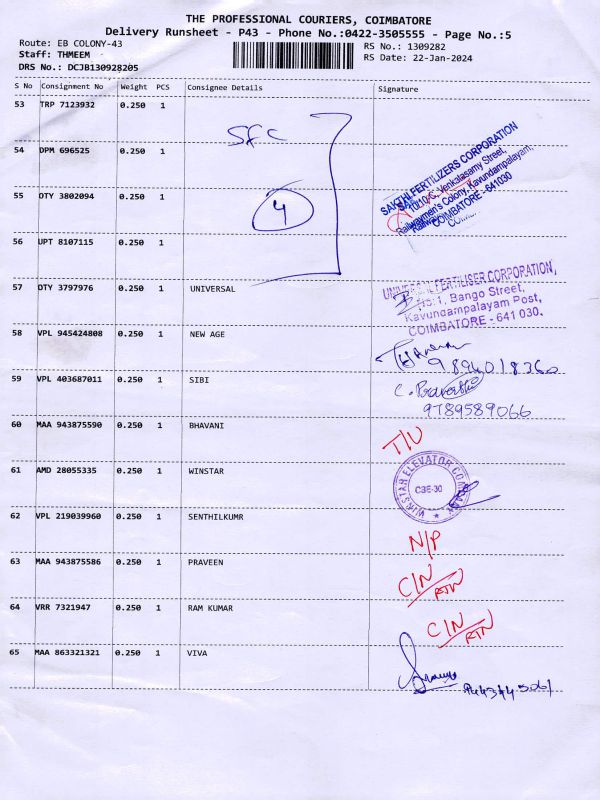 THE PROFESSIONAL COURIERS, COIMBATORE
Delivery Runsheet - P43 - Phone No.:0422-3505555 - Page No.:5
Route: EB COLONY-43 RS No.: 1309282
Staff: THMEEM RS Date: 22-Jan-2024
DRS No.: DCJB130928205
S No Consignment No Weight PCS Consignee Details Signature
53 TRP 7123932 0.250 1
SFC
54 DPM 696525 0.250 1
SAKTHI FERTILIZERS CORPORATION
10/10 C. Venkatasamy Street,
Railwaymen's Colony, Kavundampalayam,
COIMBATORE - 641030
55 DTY 3802094 0.250 1
4
56 UPT 8107115 0.250 1
57 DTY 3797976 0.250 1 UNIVERSAL
UNIVERSAL FERTILISER CORPORATION,
Bango Street,
Kavundampalayam Post,
COIMBATORE - 641 030.
58 VPL 945424808 0.250 1 NEW AGE
9894018360
59 VPL 403687011 0.250 1 SIBI
9789589066
60 MAA 943875590 0.250 1 BHAVANI T/U
61 AMD 28055335 0.250 1 WINSTAR
WIN STAR ELEVATOR COMPANY
CBE-30
62 VPL 219039960 0.250 1 SENTHILKUMR N/P
63 MAA 943875586 0.250 1 PRAVEEN C/N RTN
64 VRR 7321947 0.250 1 RAM KUMAR C/N RTN
65 MAA 863321321 0.250 1 VIVA